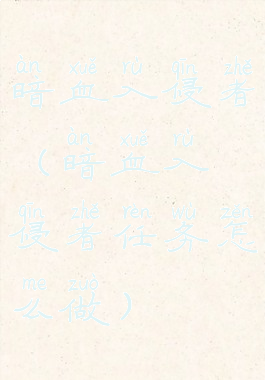 àn xuè rù qīn zhě
暗血入侵者
àn xuè rù
（暗血入
qīn zhě rèn wù zěn
侵者任务怎
me zuò
么做）